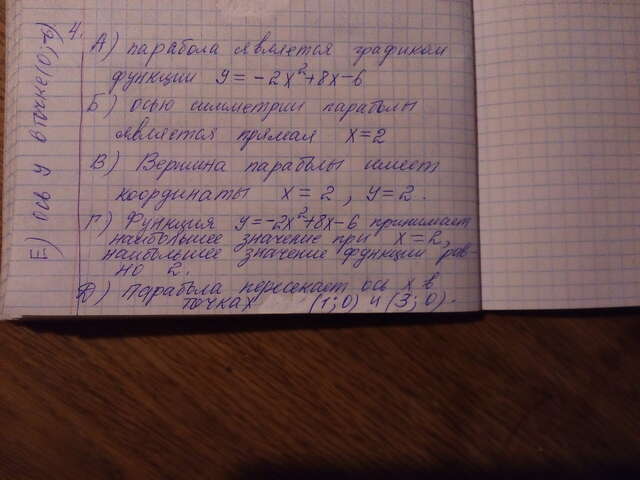 4.
А) парабола является графиком
функции y = -2x²+8x-6
Б) осью симметрии параболы
является прямая x=2
В) Вершина параболы имеет
координаты x = 2 , y = 2.
Г) Функция y=-2x²+8x-6 принимает
наибольшее значение при x=2,
наибольшее значение функции рав-
но 2.
Д) Парабола пересекает ось x в
точках (1;0) и (3;0).
Е) ось y в точке (0;-6)